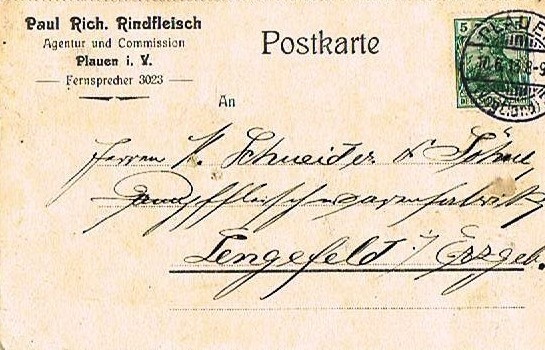 Paul Rich. Rindfleisch
Agentur und Commission
Plauen i. V.
Fernsprecher 3023
Postkarte
5
PLAUEN
10.6.13.8-9
(VOGTL.)
An
Herren
Schneider & Söhne
Lengefeld i/ Erzgeb.